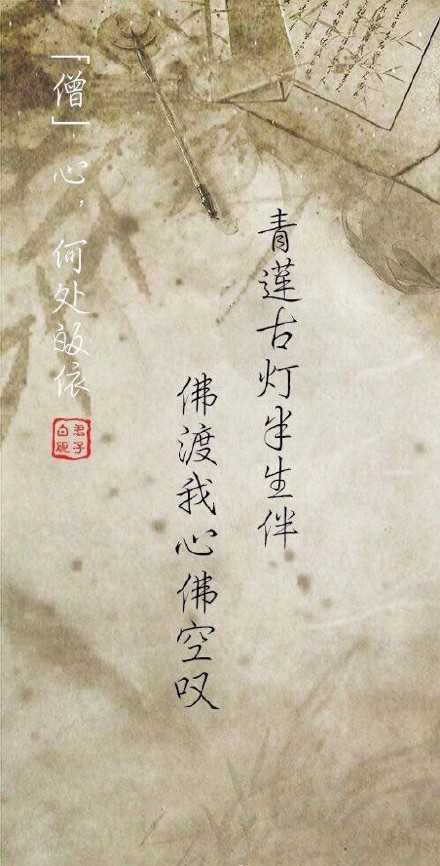 青莲古灯半生伴
佛渡我心佛空叹
「僧」心，何处皈依
君子